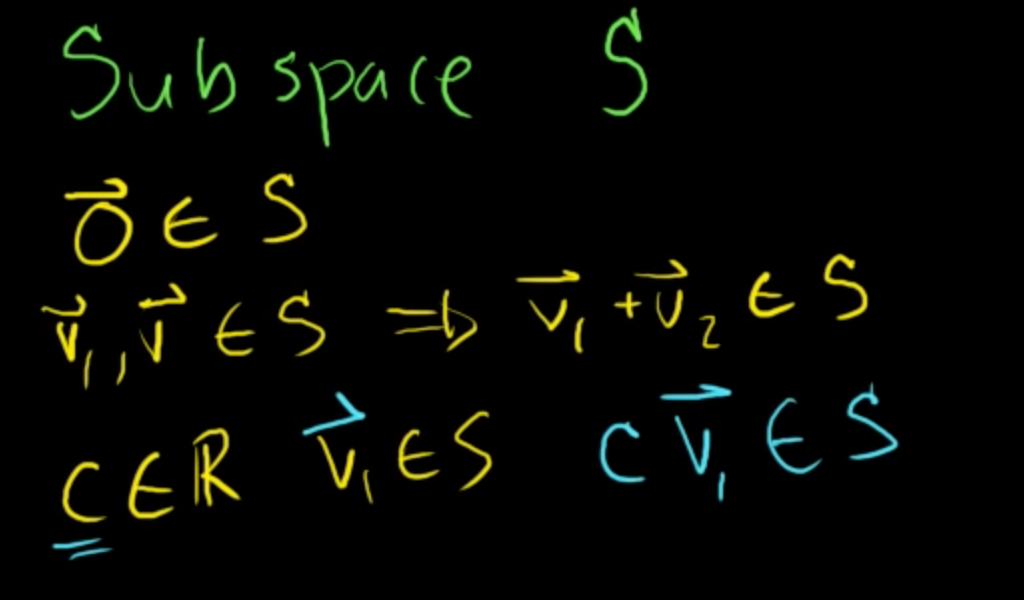 Subspace S
0⃗ ∈ S
v⃗₁, v⃗ ∈ S ⇒ v⃗₁ + v⃗₂ ∈ S
C ∈ ℝ v⃗₁ ∈ S C v⃗₁ ∈ S